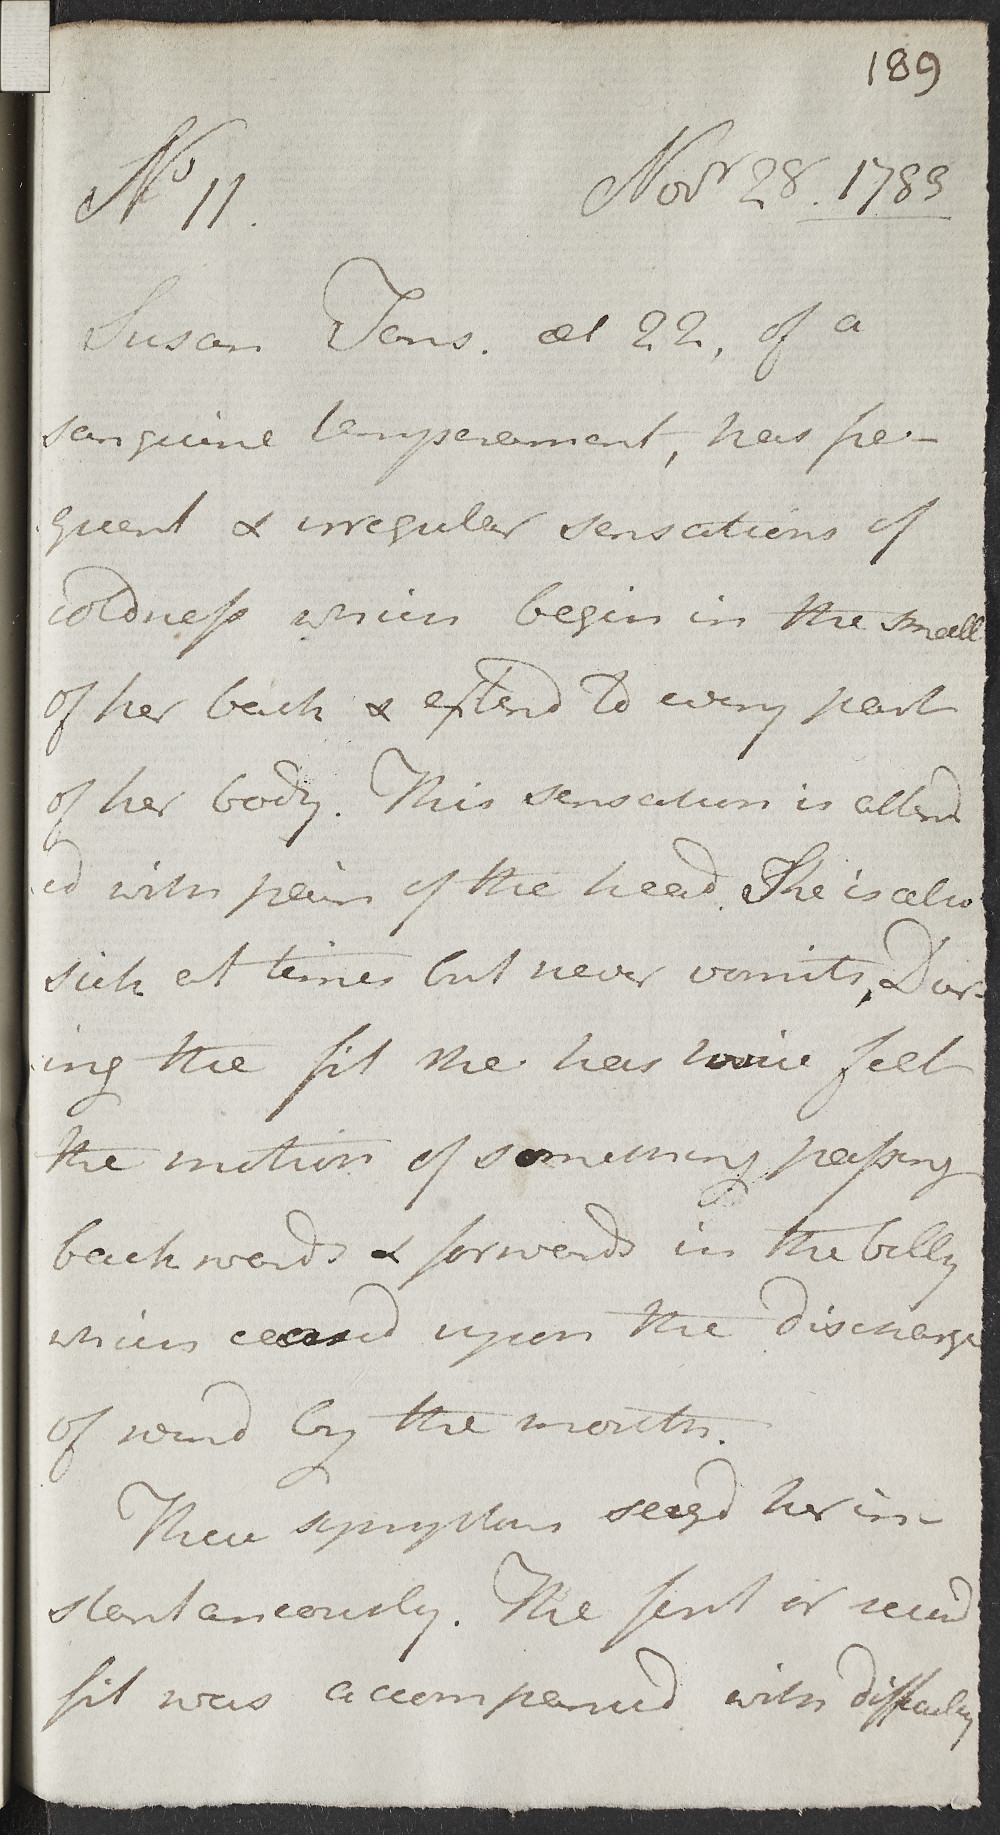 189
No 11. Novr 28. 1783
Susan Tons. æt 22, of a
sanguine temperament, has fre-
quent & irregular sensations of
coldness which begin in the small
of her back & extend to every part
of her body. This sensation is attend
ed with pain of the head. She is also
sick at times but never vomits, Dur-
ing the fit she has twice felt
the motion of something passing
backwards & forwards in the belly
which ceased upon the discharge
of wind by the mouth.
These symptoms seized her in-
stantaneously. The first or second
fit was accompanied with difficulty